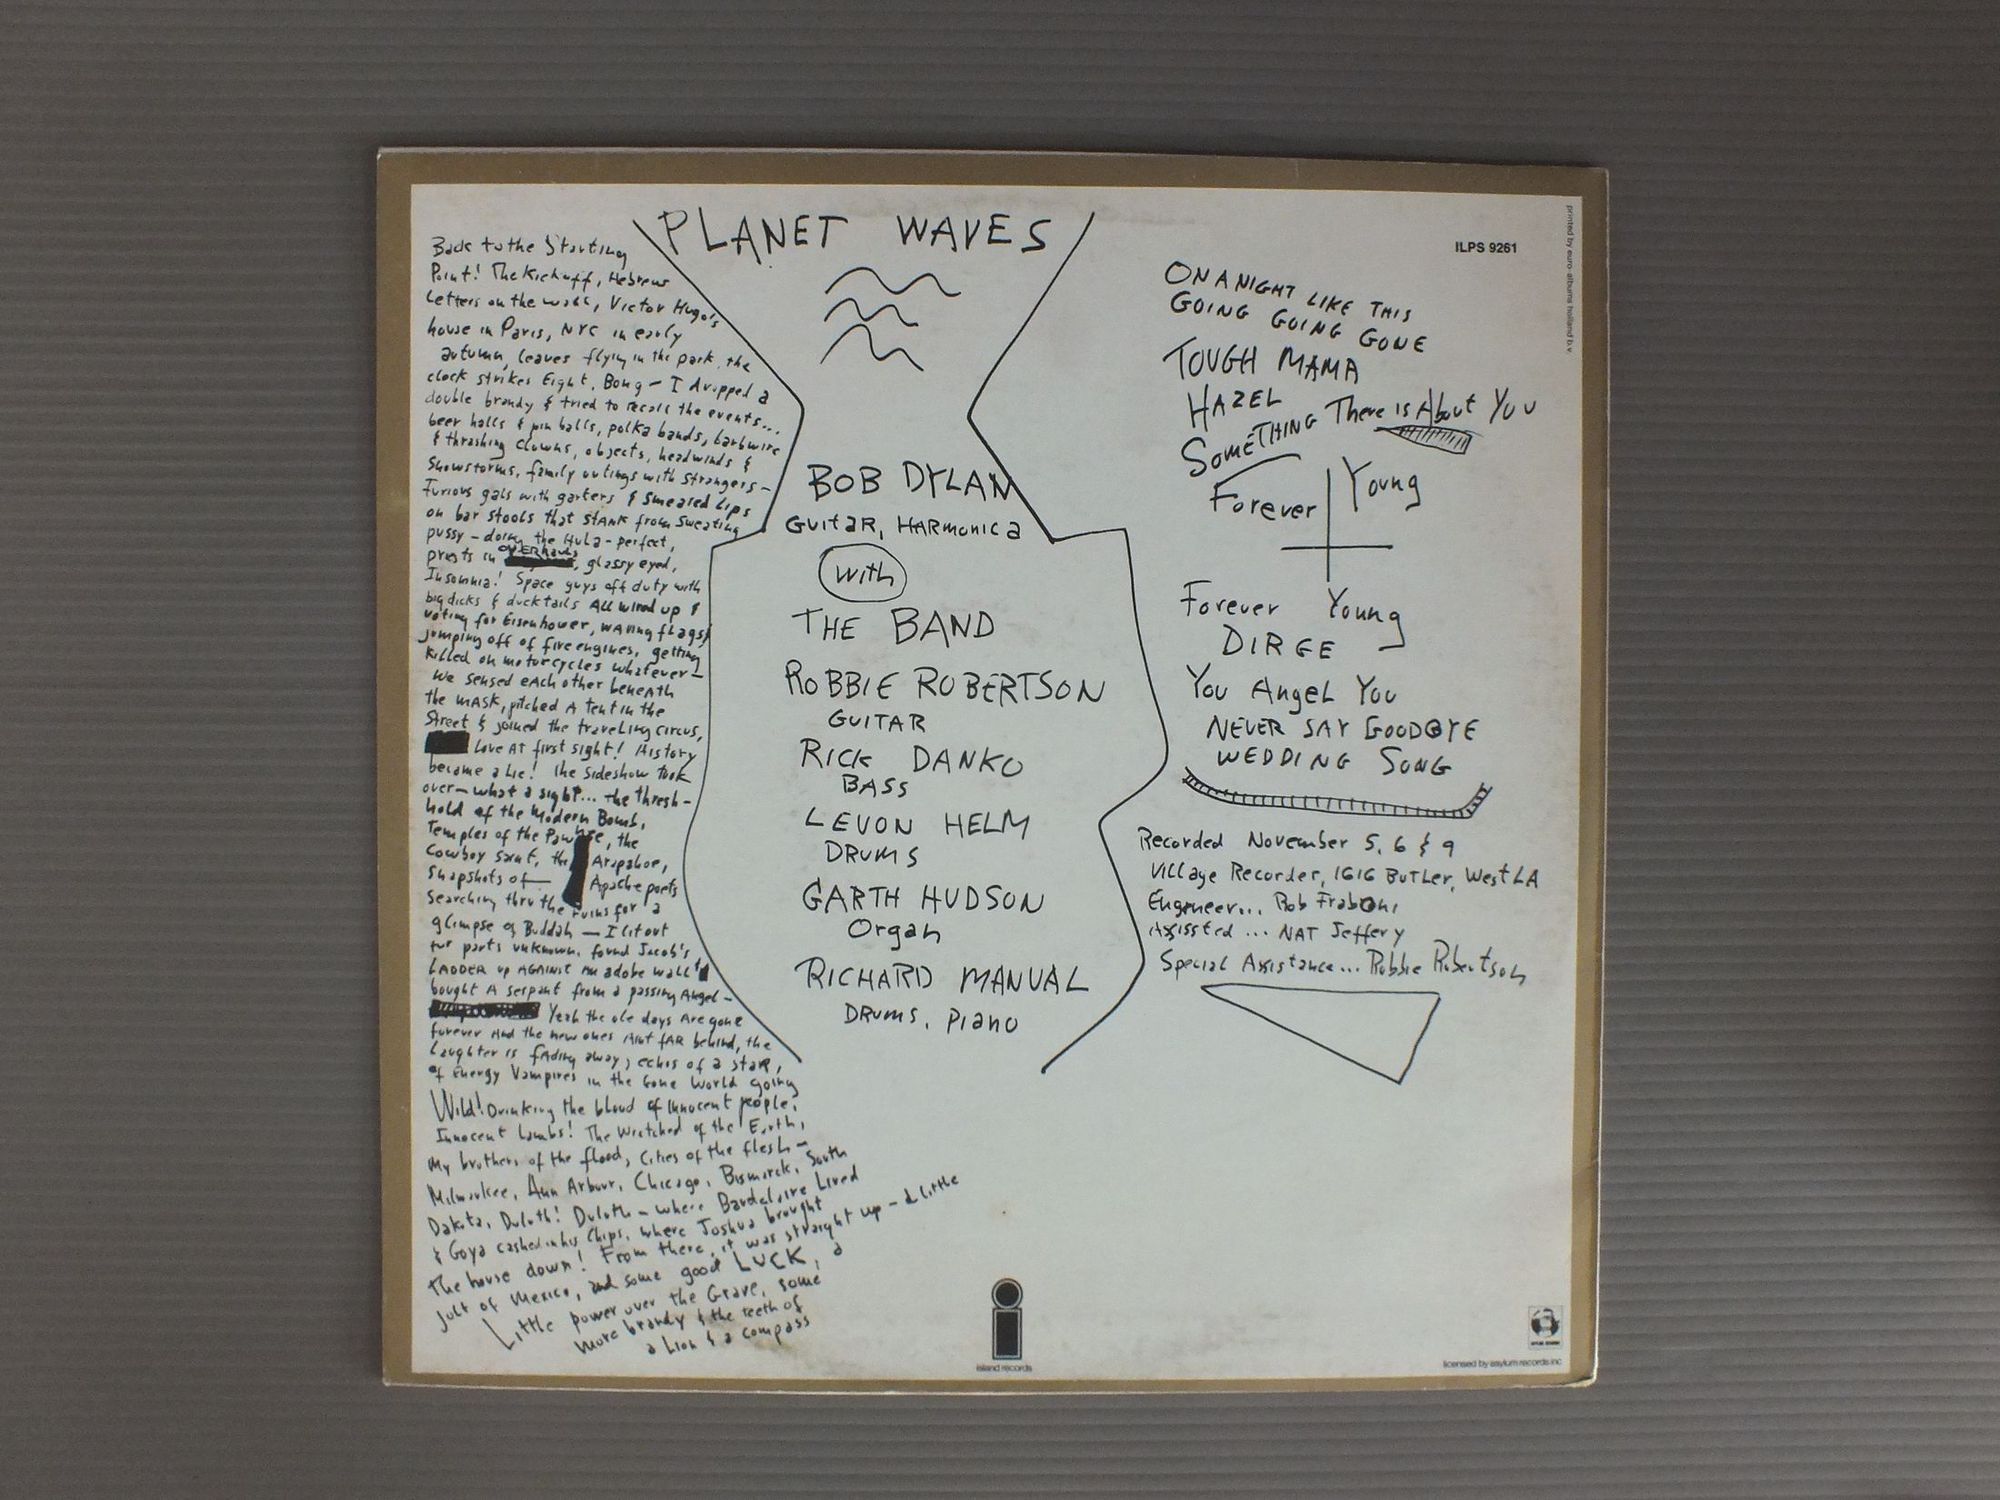 PLANET WAVES
Back to the Starting
Point! The Kickoff, Hebrew
Letters on the wall, Victor Hugo's
house in Paris, NYC in early
autumn, leaves flying in the park, the
clock strikes Eight, Bong — I dropped a
double brandy & tried to recall the events...
beer halls & pin balls, polka bands, barbwire
& thrashing clowns, objects, headwinds &
Snowstorms, family outings with strangers —
Furious gals with garters & smeared Lips
on bar stools that stank from sweating
pussy — doing the Hula - perfect,
priests in OVERhauls, glassy eyed,
Insomnia! Space guys off duty with
big dicks & ducktails All wired up &
voting for Eisenhower, waving flags &
jumping off of fire engines, getting
killed on motorcycles whatever —
We sensed each other beneath
the mask, pitched A tent in the
Street & joined the traveling circus,
Love At first sight! History
became a lie! the sideshow took
over — what a sight... the thresh-
hold of the Modern Bomb,
Temples of the Pawnee, the
Cowboy saint, the Arapahoe,
Snapshots of — Apache poets
searching thru the ruins for a
glimpse of Buddah — I lit out
for parts unknown, found Jacob's
LADDER up AGAINST An adobe wall &
bought A serpent from a passing Angel —
Yeah the ole days Are gone
forever And the new ones Aint fAR behind, the
Laughter is fAding away, echos of a staR,
of Energy Vampires in the Gone World going
Wild! Drinking the blood of innocent people,
Innocent Lambs! The Wretched of the Earth,
My brothers of the flood, Cities of the flesh —
Milwaukee, Ann Arbour, Chicago, Bismarck, South
Dakota, Duluth! Duluth — where Baudelaire Lived
& Goya cashed in his Chips, where Joshua brought
the house down! From there, it was straight up — a little
jolt of Mexico, and some good LUCK, a
Little power over the Grave, some
more brandy & the teeth of
a Lion & a compass
BOB DYLAN
GuitaR, HARmonica
With
THE BAND
ROBBIE ROBERTSON
GUITAR
RICK DANKO
BASS
LEVON HELM
DRUMS
GARTH HUDSON
Organ
RICHARD MANUAL
DRUMS, Piano
ILPS 9261
printed by euro-albums holland b.v.
ON A NIGHT LIKE THIS
GOING GOING GONE
TOUGH MAMA
HAZEL
SOMETHING There is About You
Forever Young
Forever Young
DIRGE
You Angel You
NEVER SAY GOODBYE
WEDDING SONG
Recorded November 5, 6 & 9
Village Recorder, 1616 BUTLer, West LA
Engineer... Rob Fraboni
Assissted ... NAT Jeffery
Special Assistance... Robbie Robertson
island records
licensed by asylum records inc